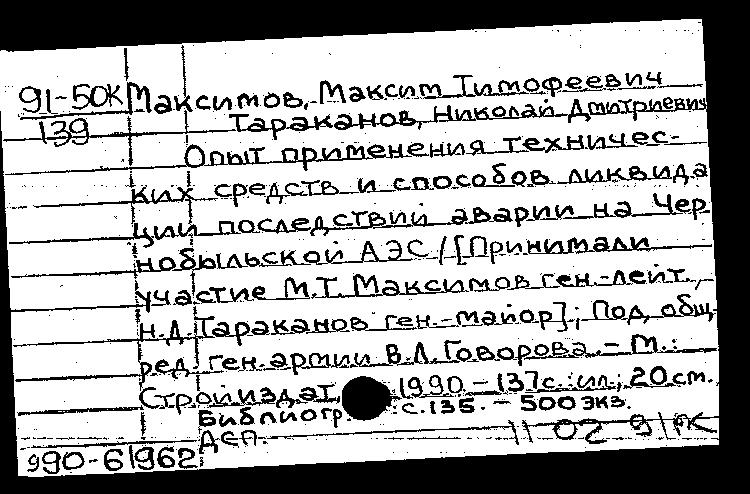 91-50К Максимов, Максим Тимофеевич
139 Тараканов, Николай Дмитриевич
Опыт применения техничес-
ких средств и способов ликвида
ции последствий аварии на Чер
нобыльской АЭС / [Принимали
участие М.Т. Максимов ген.-лейт.,
Н.Д. Тараканов ген.-майор]; Под общ.
ред. ген. армии В.Л. Говорова. - М.:
Стройиздат, 1990. - 137 с.: ил.; 20 см.
Библиогр.: с. 135. - 500 экз.
ДСП.
11 02 91
990-61962